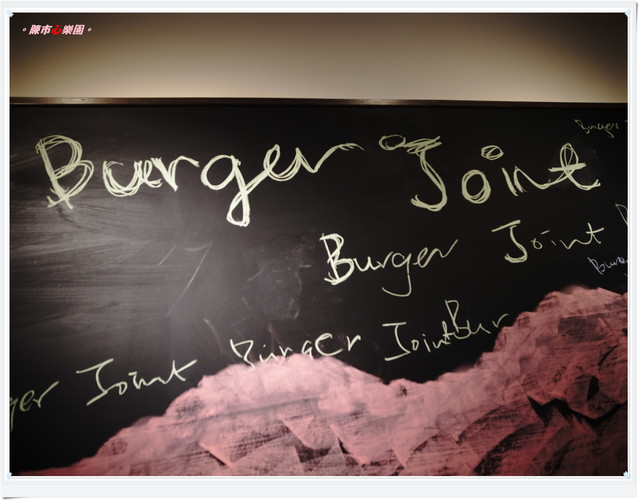 。陳市心樂園。
Burger
Burger Joint
Burger Joint
ger Joint Burger Joint Bur